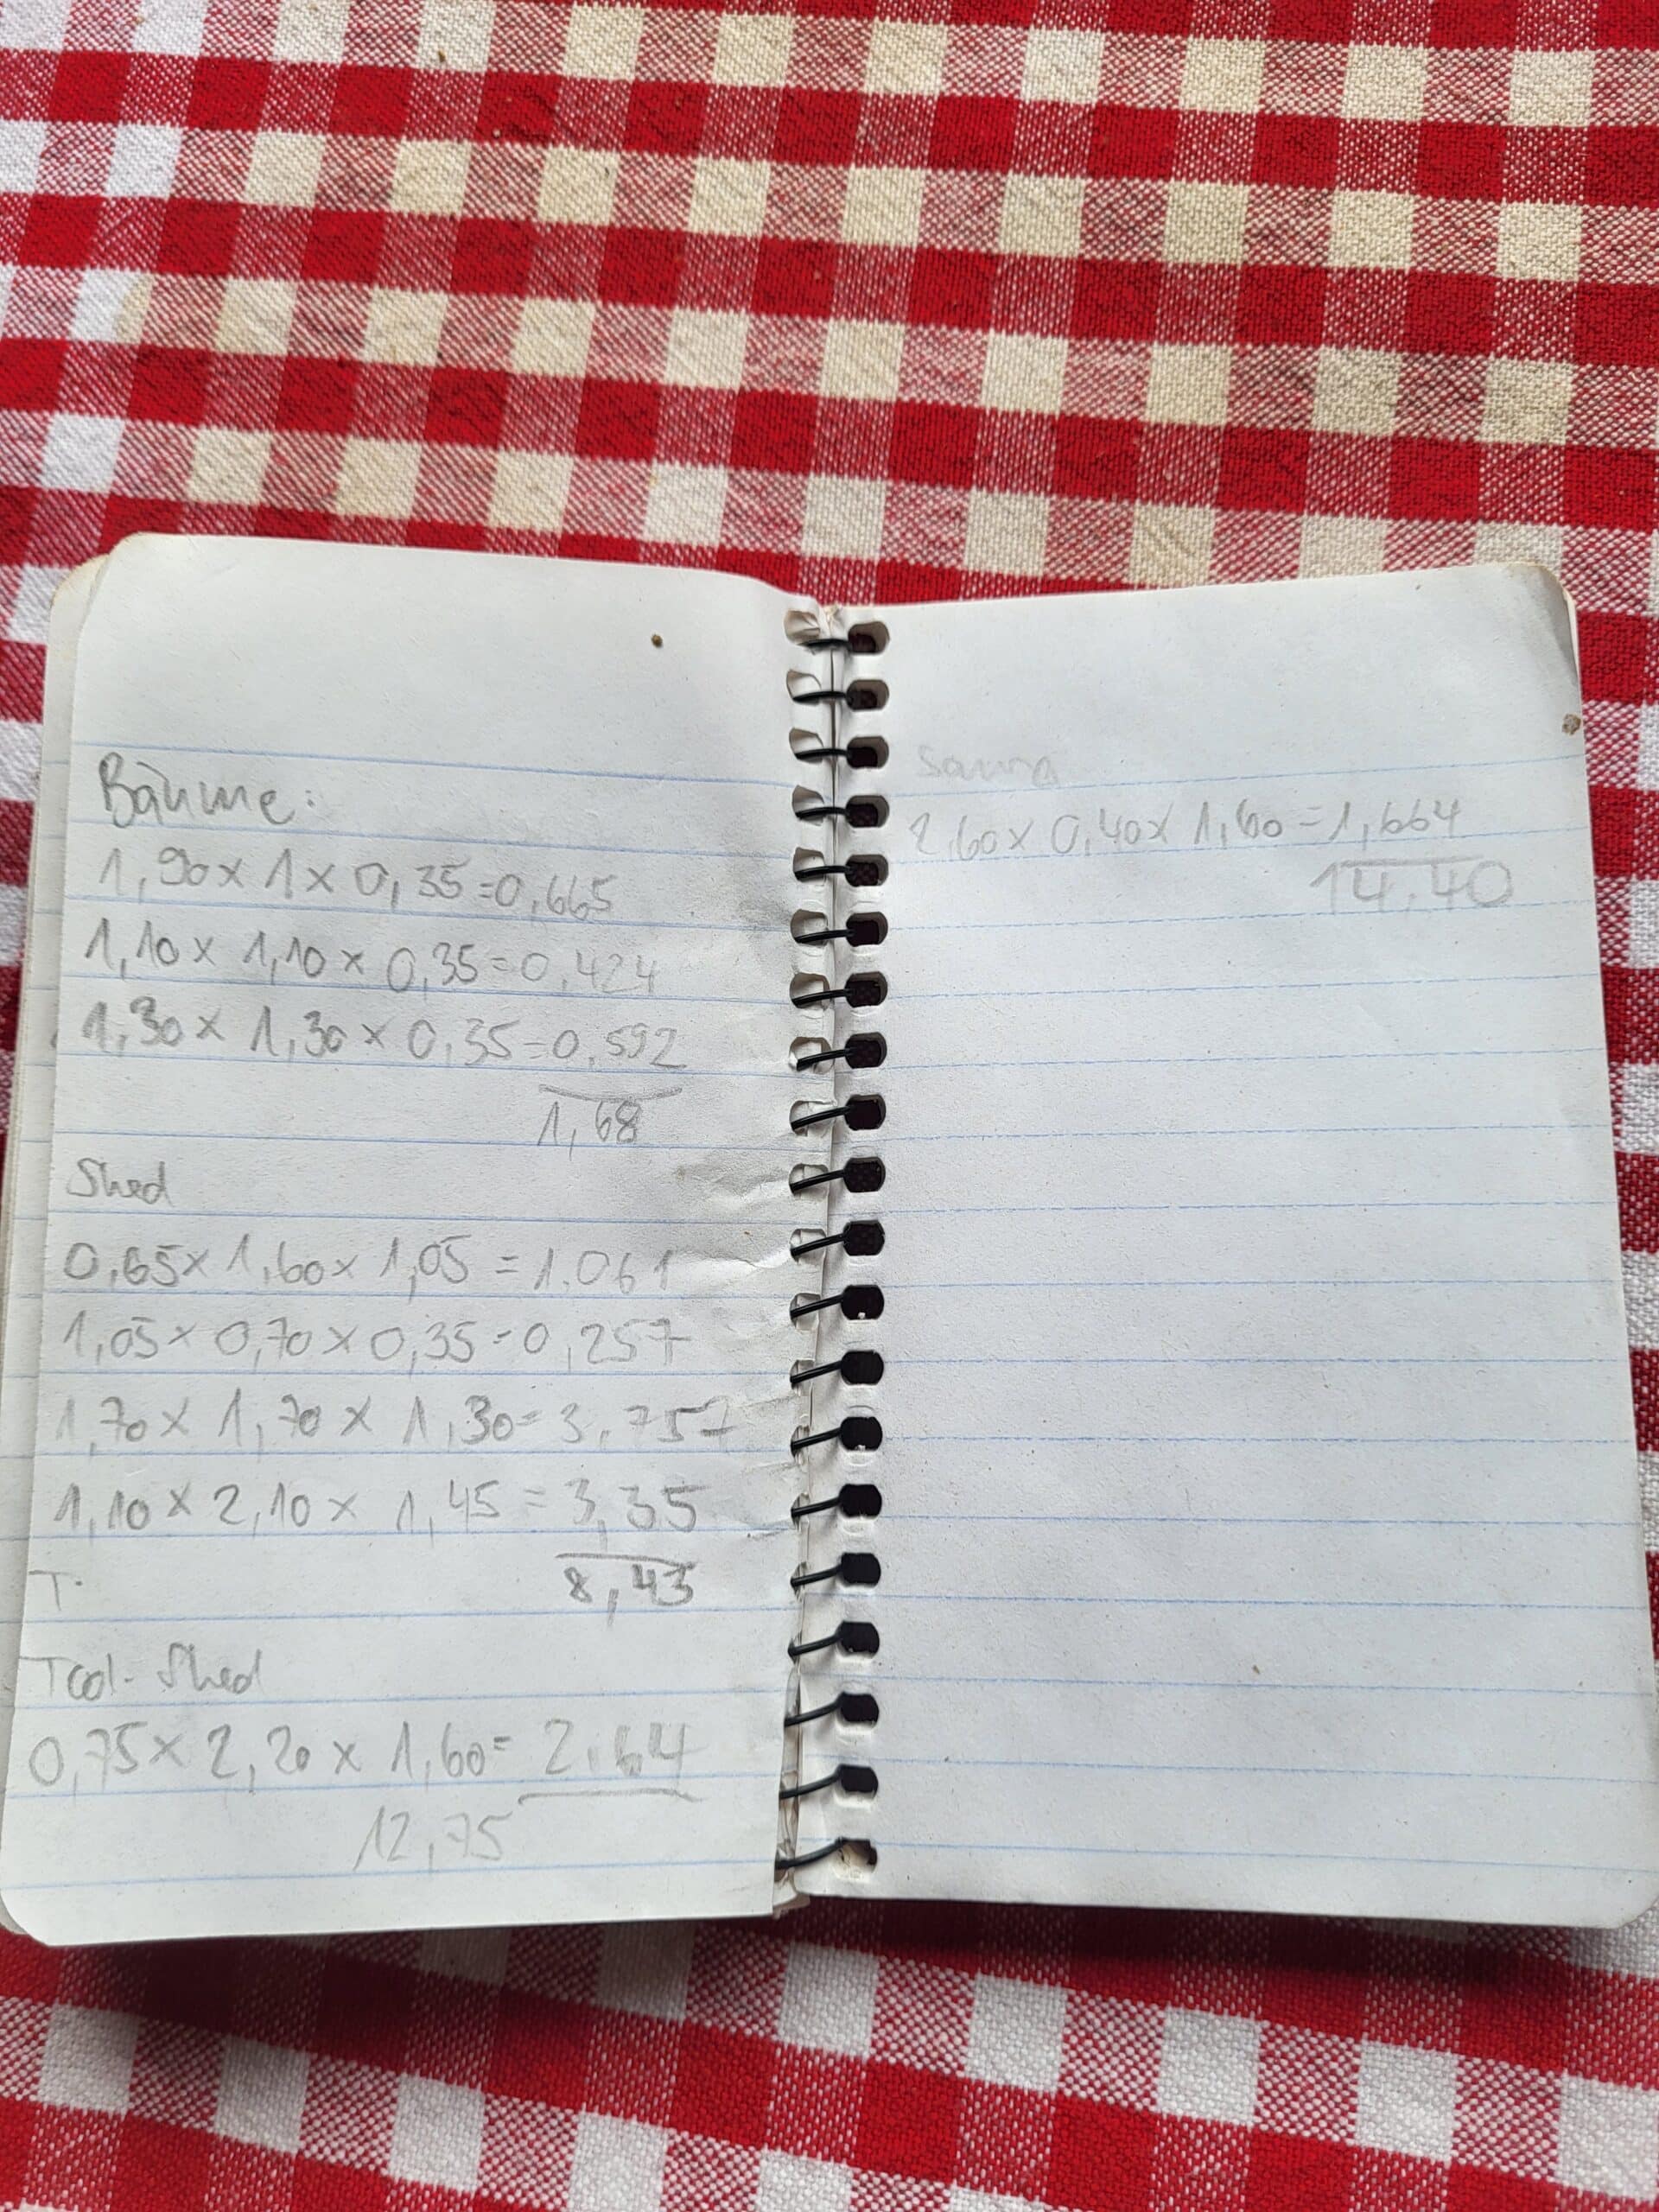 Bäume:
1,90 x 1 x 0,35 = 0,665
1,10 x 1,10 x 0,35 = 0,424
1,30 x 1,30 x 0,35 = 0,592
1,68
Shed
0,65 x 1,60 x 1,05 = 1.061
1,05 x 0,70 x 0,35 = 0,257
1,70 x 1,70 x 1,30 = 3,757
1,10 x 2,10 x 1,45 = 3,35
T. 8,43
Tool-Shed
0,75 x 2,20 x 1,60 = 2,64
12,75
Sauna
2,60 x 0,40 x 1,60 = 1,664
14,40